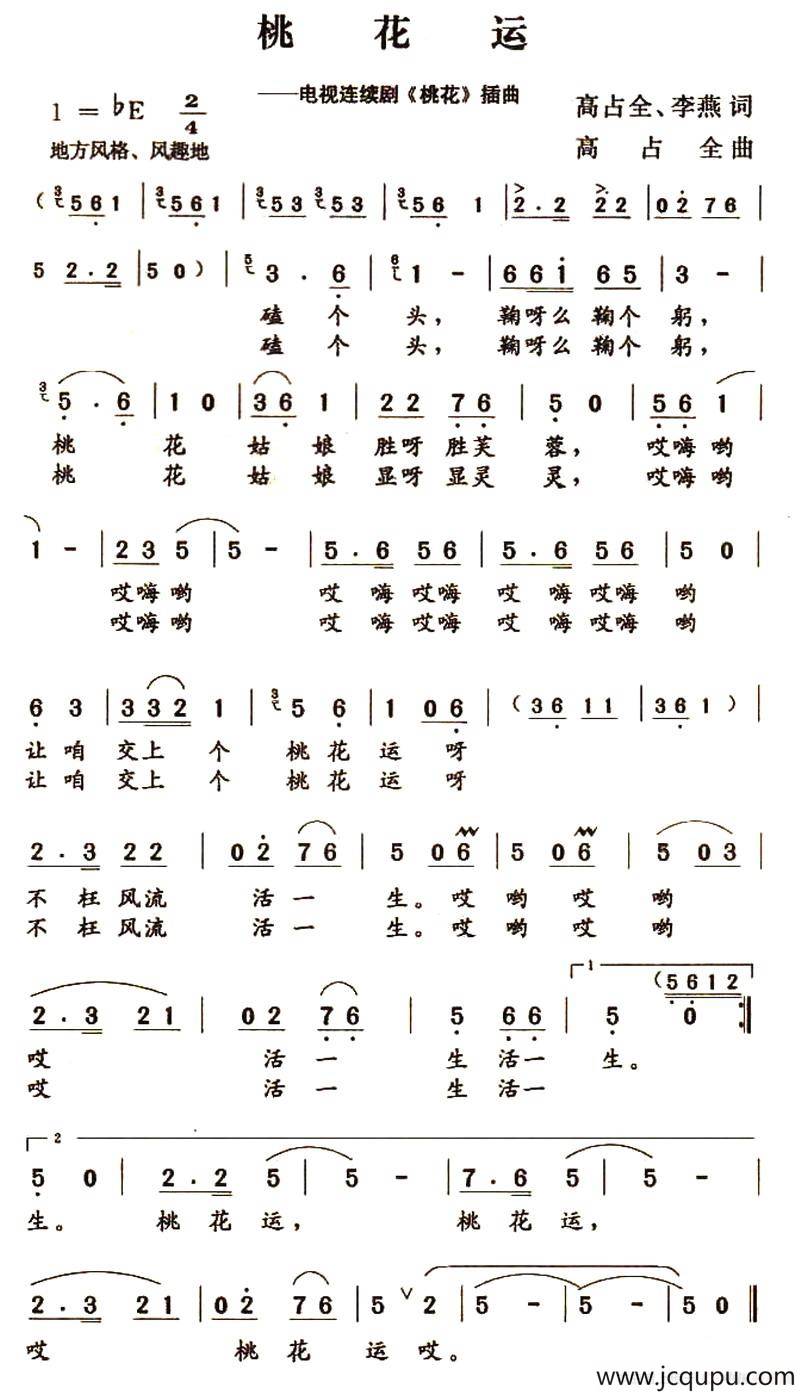 桃 花 运
——电视连续剧《桃花》插曲
1 = ♭E 2/4
高占全、李燕 词
地方风格、风趣地
高 占 全 曲
( 3 5 6 1 | 3 5 6 1 | 3 5 3 3 5 3 | 3 5 6 1 | 2 . 2 2 2 | 0 2 7 6 |
5 2 . 2 | 5 0 ) | 5 3 . 6 | 6 1 - | 6 6 1 6 5 | 3 - |
磕 个 头, 鞠呀么 鞠个 躬,
磕 个 头, 鞠呀么 鞠个 躬,
3 5 . 6 | 1 0 | 3 6 1 | 2 2 7 6 | 5 0 | 5 6 1 |
桃 花 姑 娘 胜呀 胜芙 蓉, 哎嗨哟
桃 花 姑 娘 显呀 显灵 灵, 哎嗨哟
1 - | 2 3 5 | 5 - | 5 . 6 5 6 | 5 . 6 5 6 | 5 0 |
哎嗨哟 哎 嗨 哎嗨 哎 嗨 哎嗨 哟
哎嗨哟 哎 嗨 哎嗨 哎 嗨 哎嗨 哟
6 3 | 3 3 2 1 | 3 5 6 | 1 0 6 | ( 3 6 1 1 | 3 6 1 ) |
让 咱 交上 个 桃 花 运 呀
让 咱 交上 个 桃 花 运 呀
2 . 3 2 2 | 0 2 7 6 | 5 0 6 | 5 0 6 | 5 0 3 |
不 枉 风流 活 一 生。 哎 哟 哎 哟
不 枉 风流 活 一 生。 哎 哟 哎 哟
1 ( 5 6 1 2
2 . 3 2 1 | 0 2 7 6 | 5 6 6 | 5 0 :|
哎 活 一 生 活一 生。
哎 活 一 生 活一
2
5 0 | 2 . 2 5 | 5 - | 7 . 6 5 | 5 - |
生。 桃 花 运, 桃 花 运,
2 . 3 2 1 | 0 2 7 6 | 5 ∨ 2 | 5 - | 5 - | 5 0 ‖
哎 桃 花 运 哎。
www.jcqupu.com